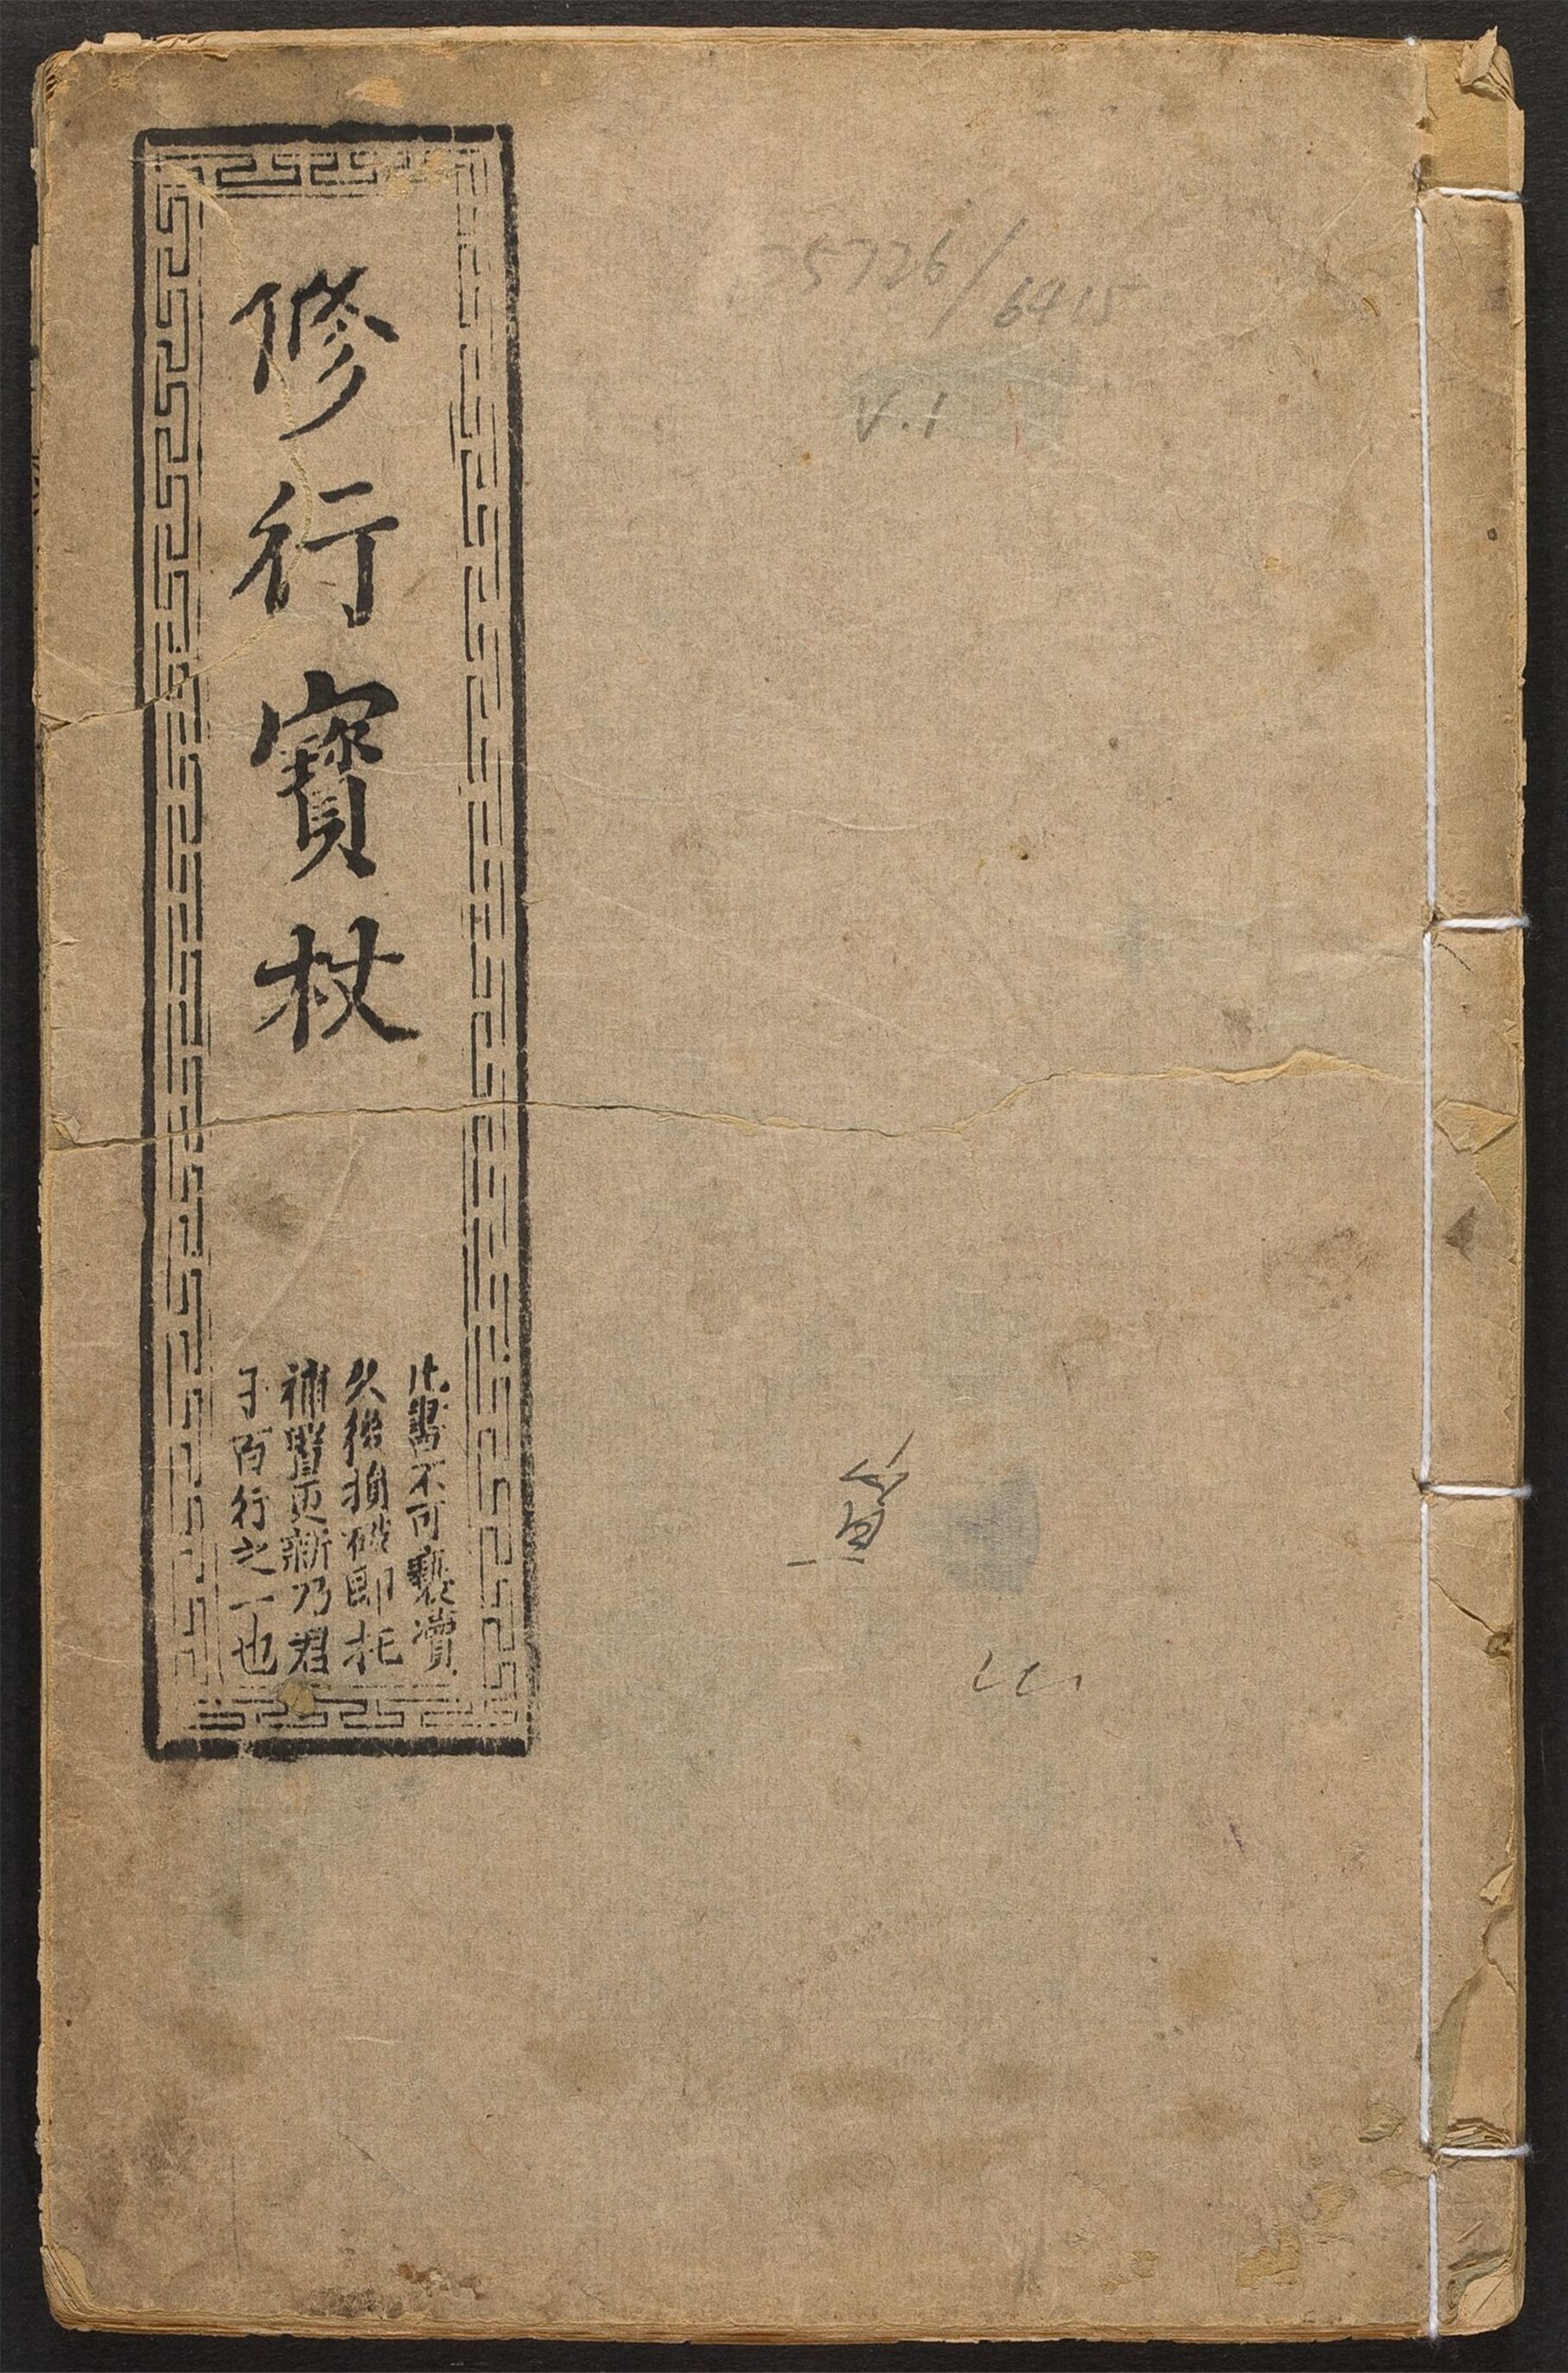 修行寶杖
此書不可褻瀆
久後損破即托
補醫更新乃君
子百行之一也
5726/6415
V.1